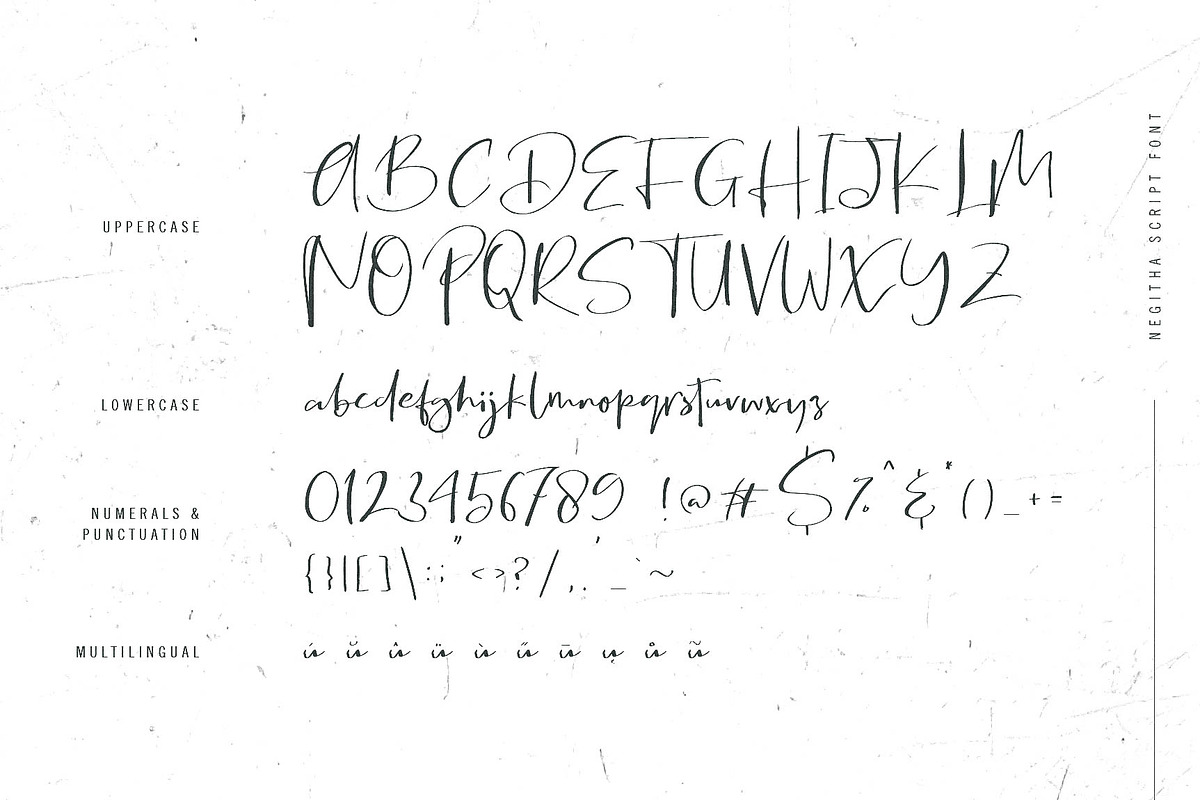 UPPERCASE
ABCDEFGHIJKLM
NOPQRSTUVWXYZ
LOWERCASE
abcdefghijklmnopqrstuvwxyz
NUMERALS &
PUNCTUATION
0123456789 !@#$%^&*()_+=
{}|[]\:;"<>?/',._`~
MULTILINGUAL
ú ŭ û ü ù ű ū ų ů ũ
NEGITHA SCRIPT FONT